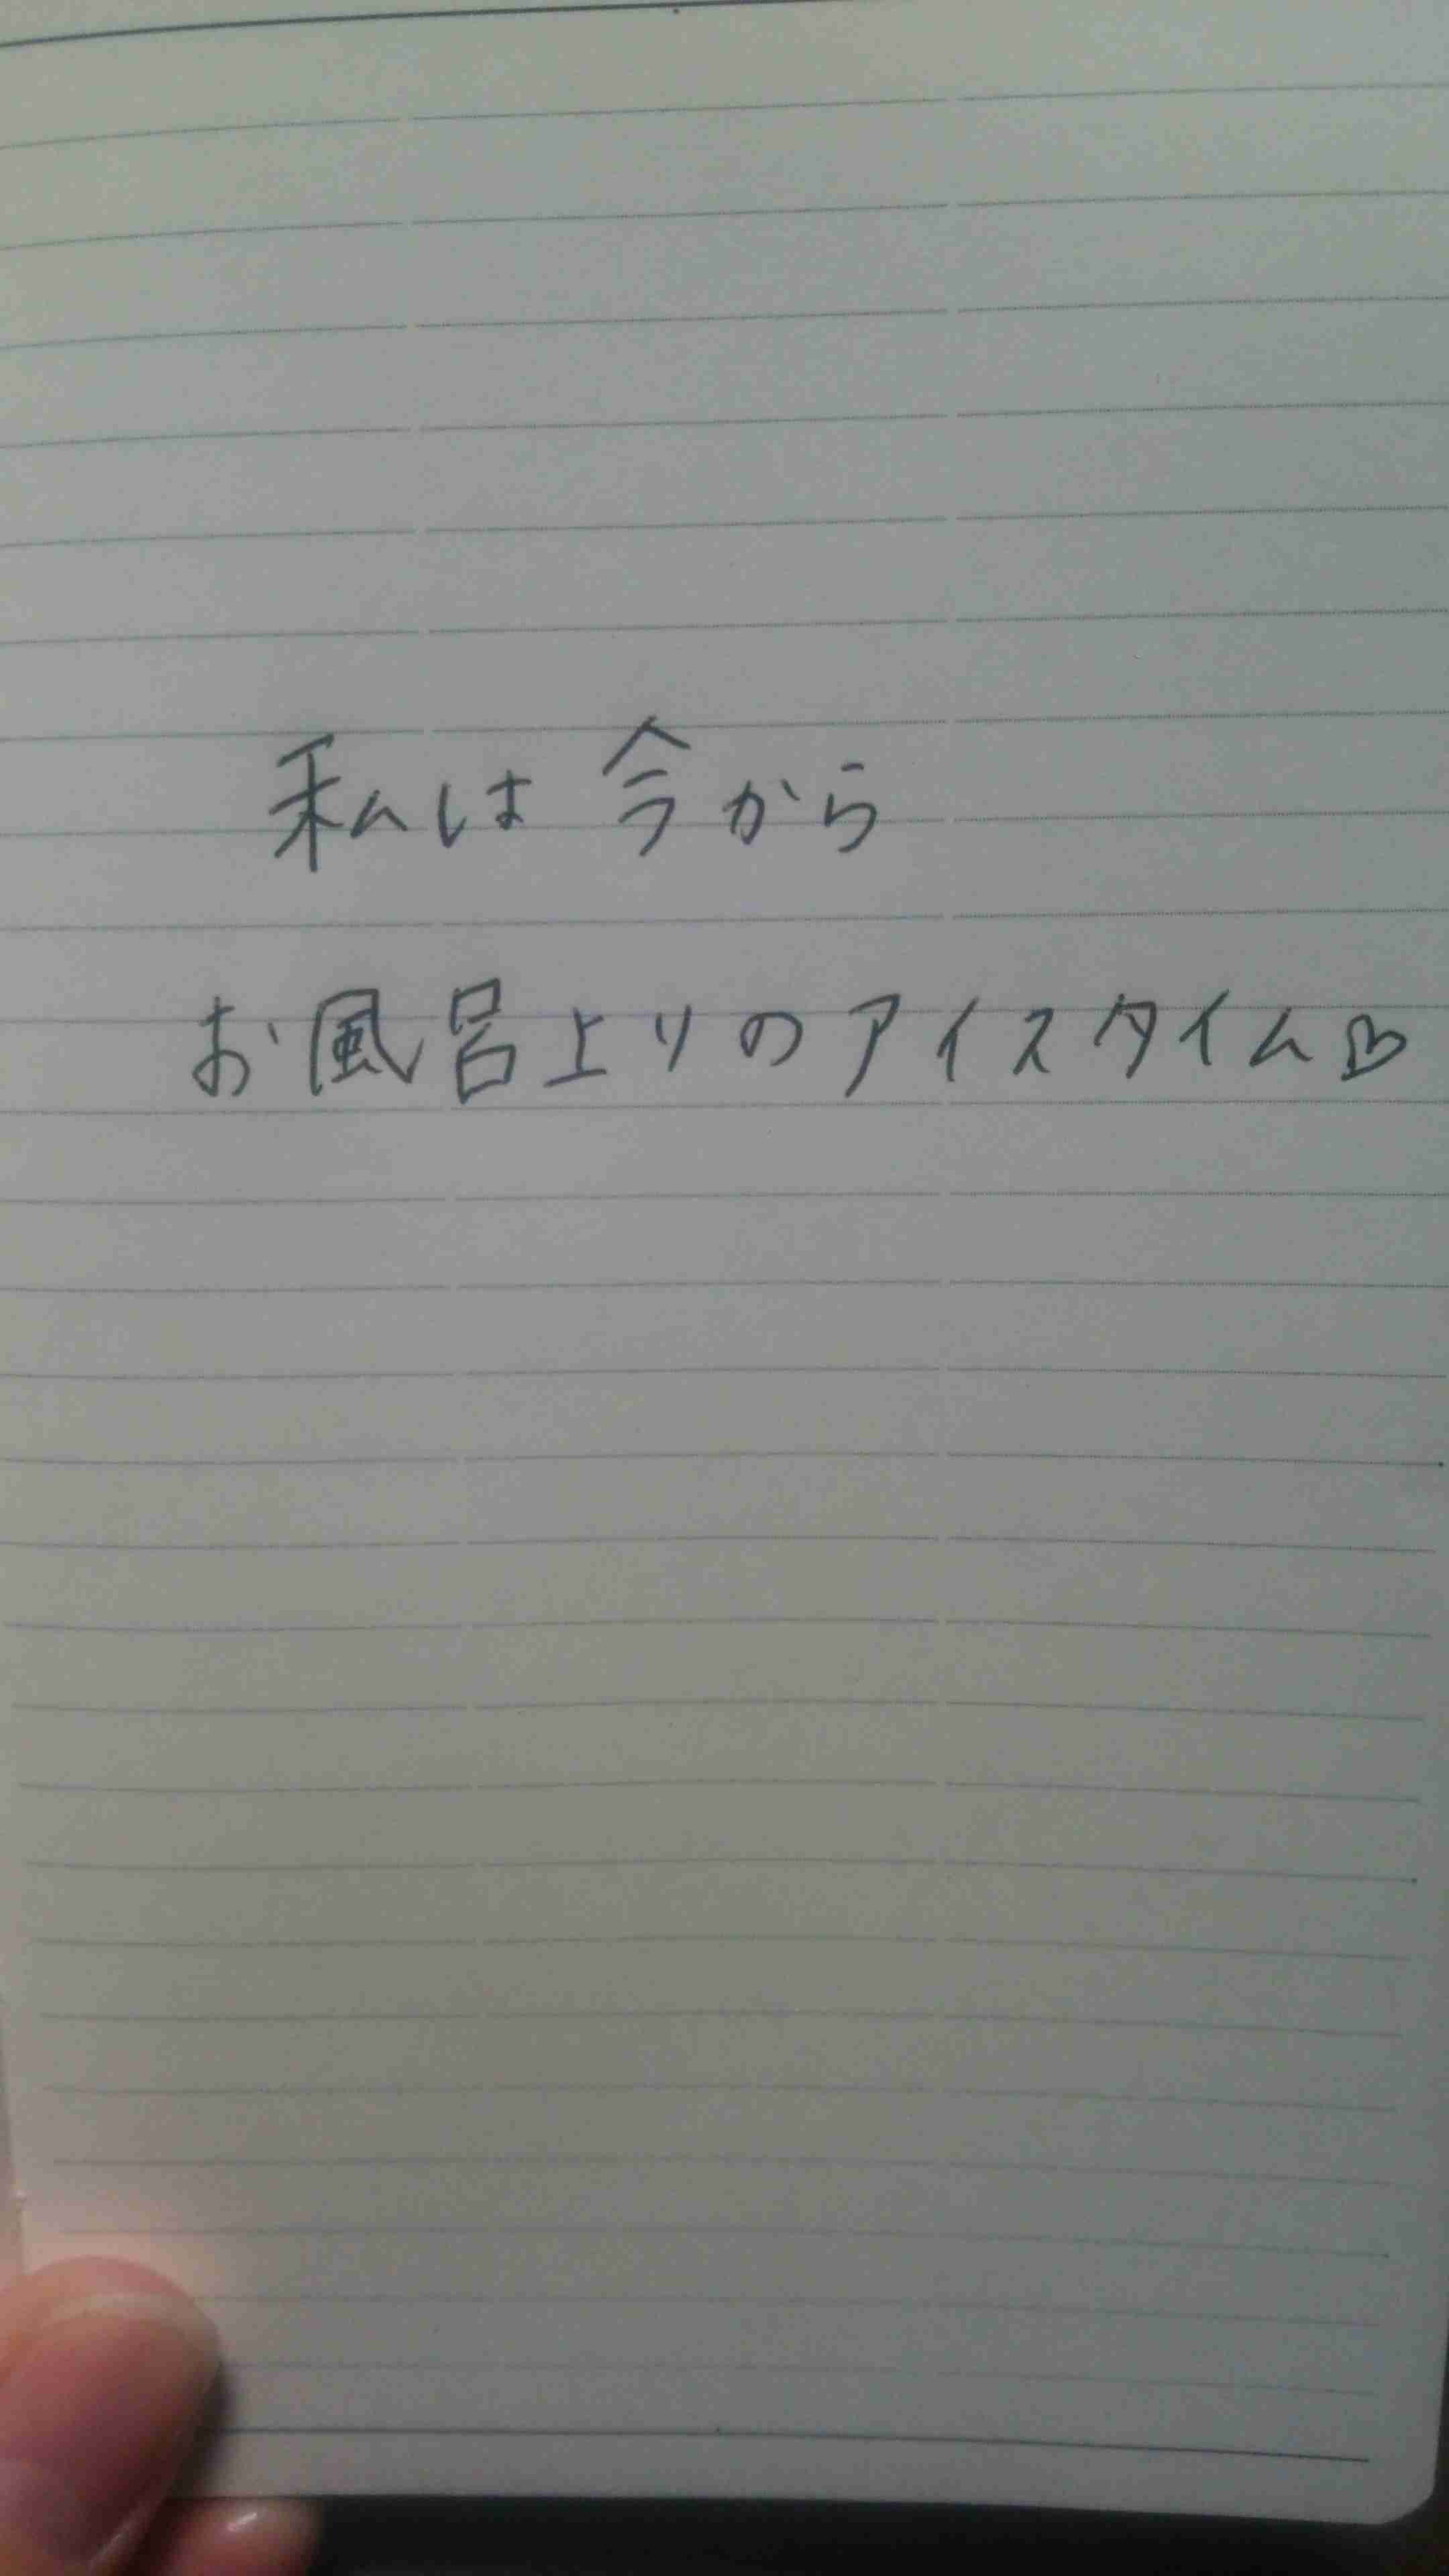 私は今から
お風呂上りのアイスタイム♡